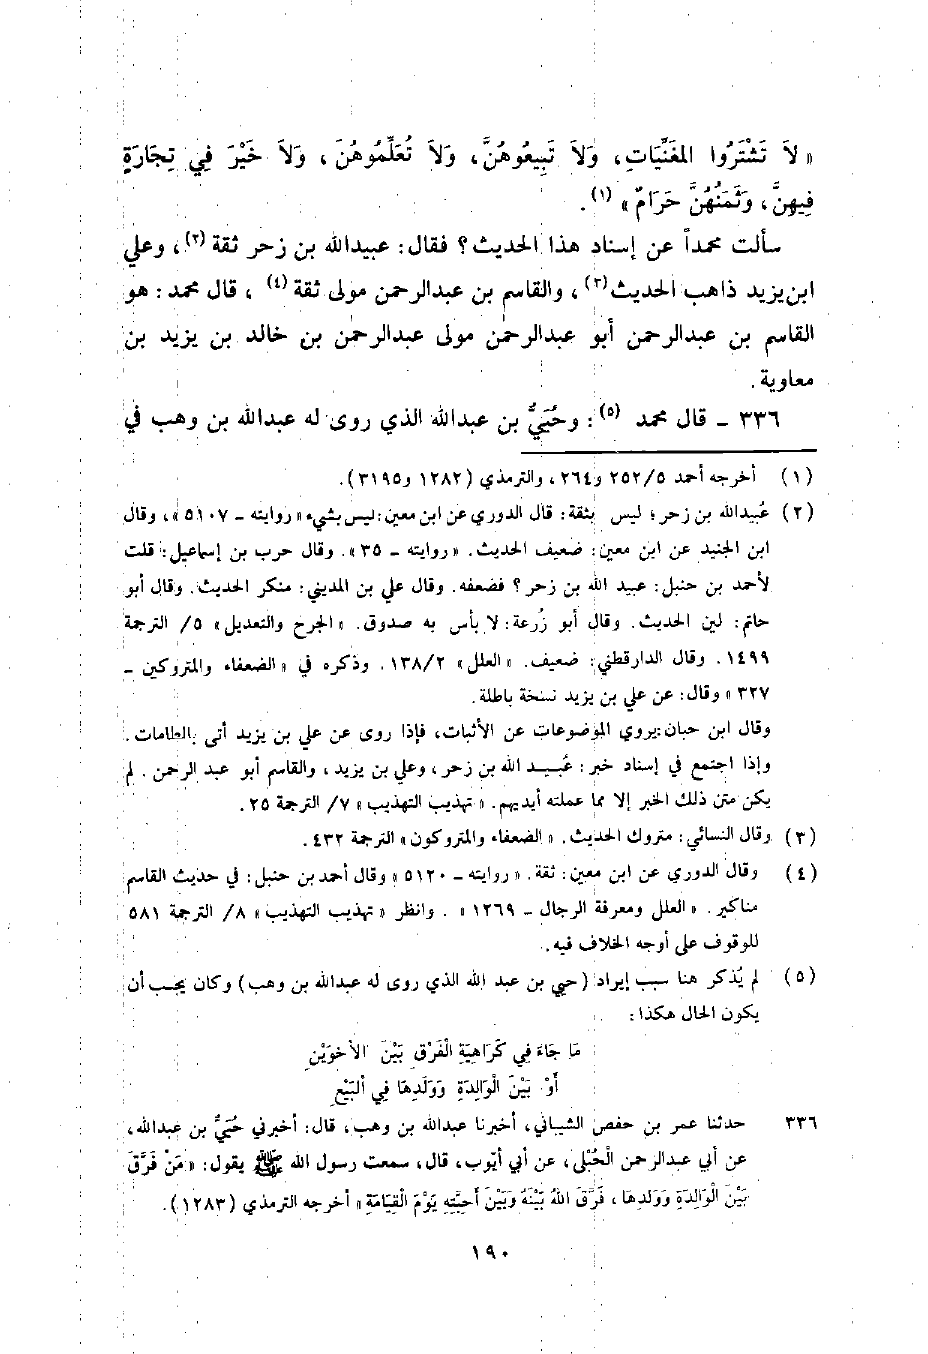 « لاَ تَشْتَرُوا المغَنِّيَاتِ، وَلاَ تَبِيعُوهُنَّ، وَلاَ تُعَلِّمُوهُنَ، وَلاَ خَيْرَ فِي تِجَارَةٍ
فِيهِنَّ، وَثَمَنُهُنَّ حَرَامٌ » (١).
سألت محمداً عن إسناد هذا الحديث؟ فقال: عبيدالله بن زحر ثقة (٢)، وعلي
ابن يزيد ذاهب الحديث (٣)، والقاسم بن عبدالرحمن مولى ثقة (٤)، قال محمد: هو
القاسم بن عبدالرحمن أبو عبدالرحمن مولى عبدالرحمن بن خالد بن يزيد بن
معاوية.
٣٣٦ ـ قال محمد (٥): وحُيَيُّ بن عبدالله الذي روى له عبدالله بن وهب في
(١) أخرجه أحمد ٢٥٢/٥ و٢٦٤، والترمذي (١٢٨٢ و٣١٩٥).
(٢) عُبيدالله بن زحر؛ ليس بثقة: قال الدوري عن ابن معين: ليس بشيء « روايته ـ ٥١٠٧ »، وقال
ابن الجنيد عن ابن معين: ضعيف الحديث. « روايته ـ ٣٥ ». وقال حرب بن إسماعيل: قلت
لأحمد بن حنبل: عبيد الله بن زحر؟ فضعفه. وقال علي بن المديني: منكر الحديث. وقال أبو
حاتم: لين الحديث. وقال أبو زُرعة: لا بأس به صدوق. « الجرح والتعديل » ٥/ الترجمة
١٤٩٩. وقال الدارقطني: ضعيف. « العلل » ١٣٨/٢. وذكره في « الضعفاء والمتروكين ـ
٣٢٧ » وقال: عن علي بن يزيد نسخة باطلة.
وقال ابن حبان: يروي الموضوعات عن الأثبات، فإذا روى عن علي بن يزيد أتى بالطامات.
وإذا اجتمع في إسناد خبر: عُبيد الله بن زحر، وعلي بن يزيد، والقاسم أبو عبد الرحمن. لم
يكن متن ذلك الخبر إلا مما عملته أيديهم. « تهذيب التهذيب » ٧/ الترجمة ٢٥.
(٣) وقال النسائي: متروك الحديث. « الضعفاء والمتروكون » الترجمة ٤٣٢.
(٤) وقال الدوري عن ابن معين: ثقة. « روايته ـ ٥١٢٠ » وقال أحمد بن حنبل: في حديث القاسم
مناكير. « العلل ومعرفة الرجال ـ ١٢٦٩ ». وانظر « تهذيب التهذيب » ٨/ الترجمة ٥٨١
للوقوف على أوجه الخلاف فيه.
(٥) لم يُذكر هنا سبب إيراد (حيي بن عبد الله الذي روى له عبدالله بن وهب) وكان يجب أن
يكون الحال هكذا:
مَا جَاءَ فِي كَرَاهِيَةِ الْفَرْقِ بَيْنَ الأخوَيْنِ
أَوْ بَيْنَ الْوَالِدَةِ وَوَلَدِهَا فِي الْبَيْعِ
٣٣٦ حدثنا عمر بن حفص الشيباني، أخبرنا عبدالله بن وهب، قال: أخبرني حُيَيُّ بن عبدالله،
عن أبي عبدالرحمن الْحُبُلى، عن أبي أيّوب، قال، سمعت رسول الله ﷺ يقول: « مَنْ فَرَّقَ
بَيْنَ الْوَالِدَةِ وَوَلَدِهَا، فَرَّقَ اللهُ بَيْنَهُ وَبَيْنَ أحِبَّتِهِ يَوْمَ الْقِيَامَةِ » أخرجه الترمذي (١٢٨٣).
١٩٠